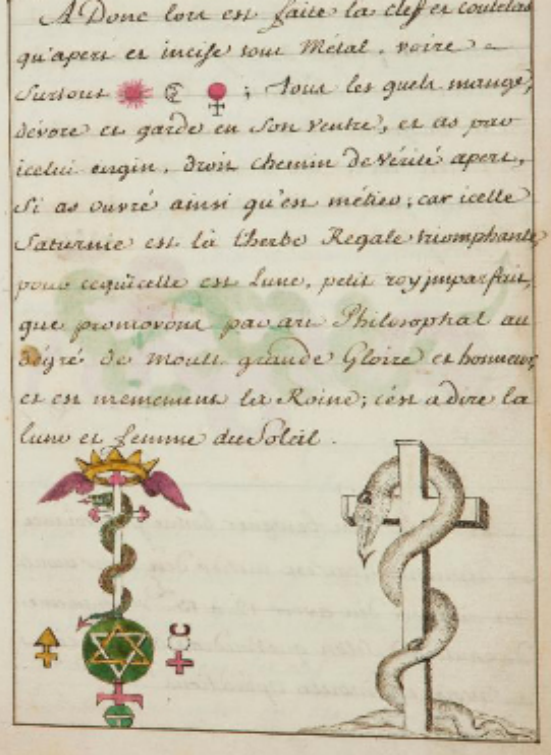 A Donc lors est faite la clef et coutelas
qu'apert et incise tout Métal, voire
surtout ☉ ☾ ♀ ; Tous les quels mange,
dévore et garde en son ventre, et as par
icelui engin, droit chemin de Vérité apert,
si as ouvré ainsi qu'est métier ; car icelle
Saturnie est là l'herbe Regale triomphante
pour ce qu'icelle est Lune, petit roy imparfait,
que promovons par art Philosophal au
dégré de moult grande Gloire et honneur,
et est mememens la Roine ; c'est a dire la
lune et femme du Soleil .